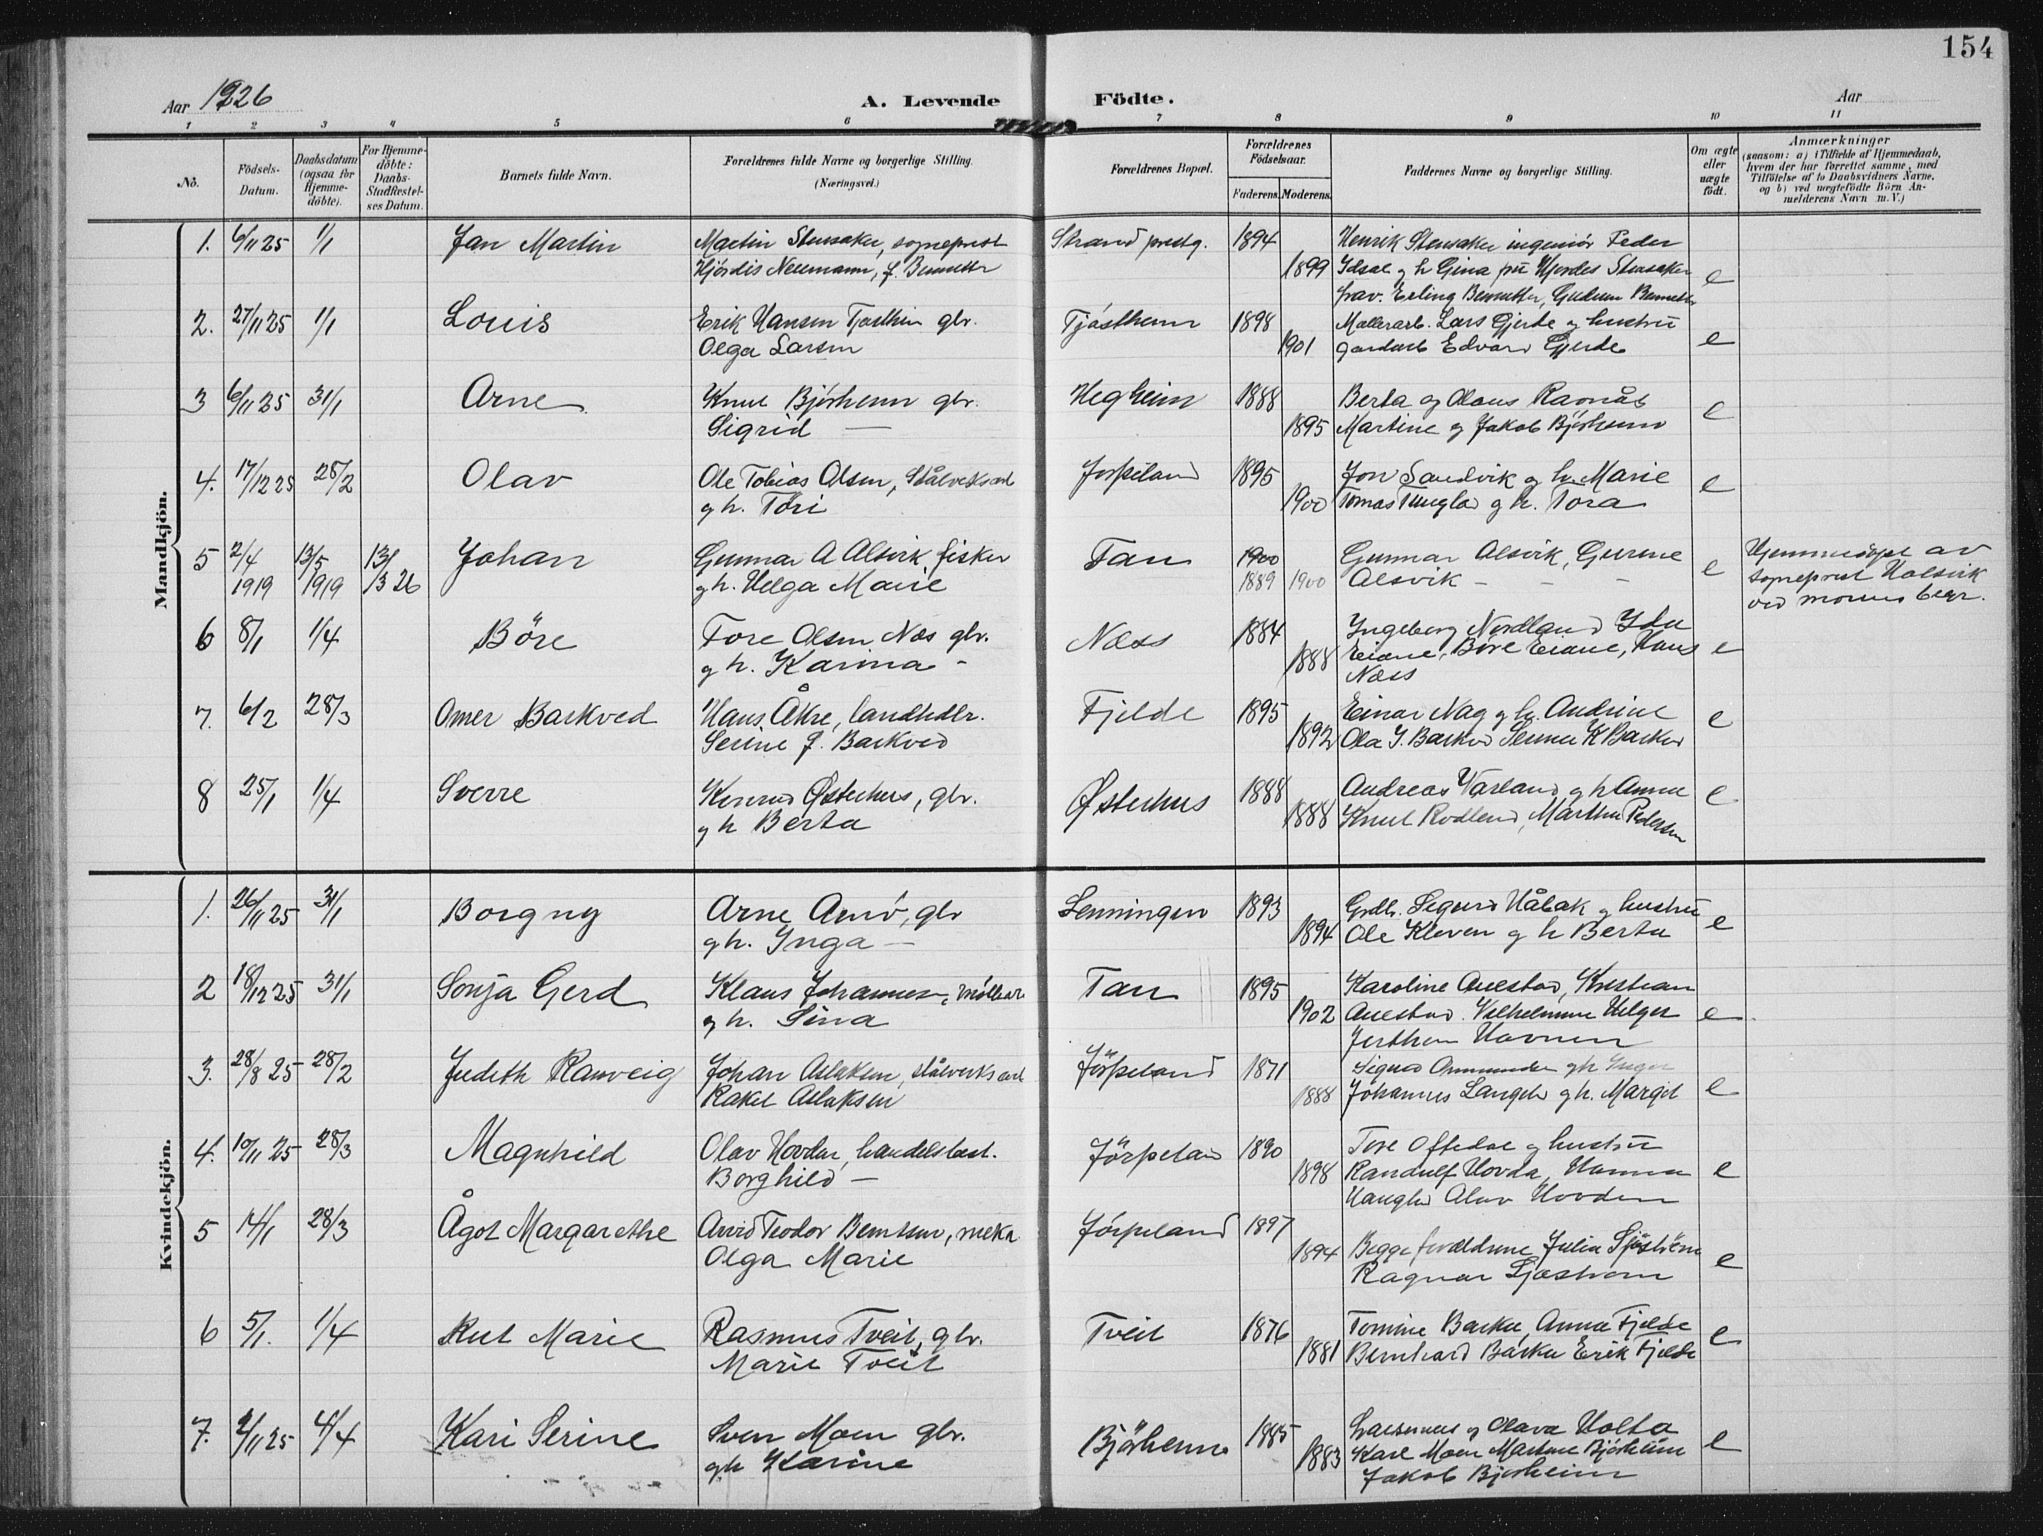 154
Aar 1926
A. Levende Födte.
Aar
1 2 3 4 5 6 7 8 9 10 11
No.
Födsels-Datum.
Daabsdatum (ogsaa for Hjemme-döbte).
For Hjemme-döbte: Daabs-Stadfæstel-ses Datum.
Barnets fulde Navn.
Forældrenes fulde Navne og borgerlige Stilling. (Næringsvei.)
Forældrenes Bopæl.
Forældrenes Födselsaar.
Faderens. Moderens.
Faddernes Navne og borgerlige Stilling.
Om ægte eller uægte födt.
Anmærkninger
(saasom: a) i Tilfælde af Hjemmedaab, hvem der har forrettet samme, med Tilföielse af to Daabsvidners Navne, og b) ved uægtefödte Börn An-melderens Navn m. V.)
Mandkjön.
1. 6/11 25 1/1 Jan Martin Martin Stensaker, sogneprest Strand prestg. 1894 Henrik Stensaker ingeniør Peder
Hjördis Neumann, f. Bennetter 1899 Idsøe g h Gina frk Hjørdis Stensaker e
frav. Erling Bennetter, Gudrun Bennetter
2. 27/11 25 1/1 Louis Erik Hansen Tjøstheim gbr. Tjöstheim 1898 Møllerarb. Lars Gjerde og hustru
Olga Larsen 1901 gardarb Edvard Gjerde e
3 6/11 25 31/1 Arne Knut Bjørheim gbr. Hegheim 1888 Berta og Olaus Ramås
Sigrid — 1895 Martine og Jakob Bjørheim e
4. 17/12 25 28/2 Olav Ole Tobias Olsen, Stålverksarb Jørpeland 1895 Jon Sandvik og h. Marie
g h. Tori 1900 Tomas Tungland g h. Tora e
5 2/4 1919 13/5 1919 13/3 26 Johan Gunnar A Alsvik, fisker Tau 1900 Gunnar Alsvik, Gurine
g h. Helga Marie 1889 1900 Alsvik - - - e
Hjemmedøpt av
sogneprest Halsvik
ved morens begr.
6 8/1 1/4 Böre Tore Olsen Næs gbr. Næss 1884 Ingeborg Nordland Ida
g h. Karina - 1888 Eiane, Böre Eiane, Hans e
Næss
7. 6/2 28/3 Omer Barkved Hans Åkre, landhdlr. Fjelde 1895 Einar Nag g h. Andrine
Serine f. Barkved 1892 Ola J. Barkved Serina K Barkved e
8 25/1 1/4 Sverre Konrad Østerhus, gbr. Østerhus 1888 Andreas Varland g h Anna
g h Berta 1888 Knut Rodland, Martha Pedersen e
Kvindekjön.
1. 26/11 25 31/1 Borgny Arne Amö, gbr Lenningen 1893 Grdbr. Sigurd Håbak og hustru
g h. Inga — 1894 Ole Kleven g h Berta e
2 18/12 25 31/1 Sonja Gerd Klaus Johannesen, møllearb Tau 1895 Karoline Auestad, Kristian
g h. Sina 1902 Auestad. Vilhelmine Helger e
Havnen
3. 28/8 25 28/2 Judith Ranveig Johan Aslaksen, stålverksarb Jörpeland 1871 Sigurd Ommundsen g h Inger
Rakel Aslaksen 1888 Johannes Langeb g h. Margit e
4. 10/11 25 28/3 Magnhild Olav Hovden, handelsbest. Jörpeland 1890 Tore Oftedal og hustru
Borghild — 1898 Randulf Hovda, Hanna e
Haugland Olav Hovden
5 14/1 28/3 Ågot Margarethe Arvid Teodor Berntsen, mekn Jörpeland 1897
Olga Marie 1894 Begge forældrene Julia Sjöström e
Ragnar Sjøstrøm
6 5/1. 1/4 Rut Marie Rasmus Tveit, gbr. Tveit 1876 Tomine Barka, Anna Fjelde
Marie Tveit 1881 Bernhard Barka Erik Fjelde e
7. 9/11 25 4/4 Kari Serine Sven Moen gbr. Bjørheim 1885 og Olava Holta
g h Karine 1883 Karl Moen Martine Bjørheim e
Jakob Bjørheim